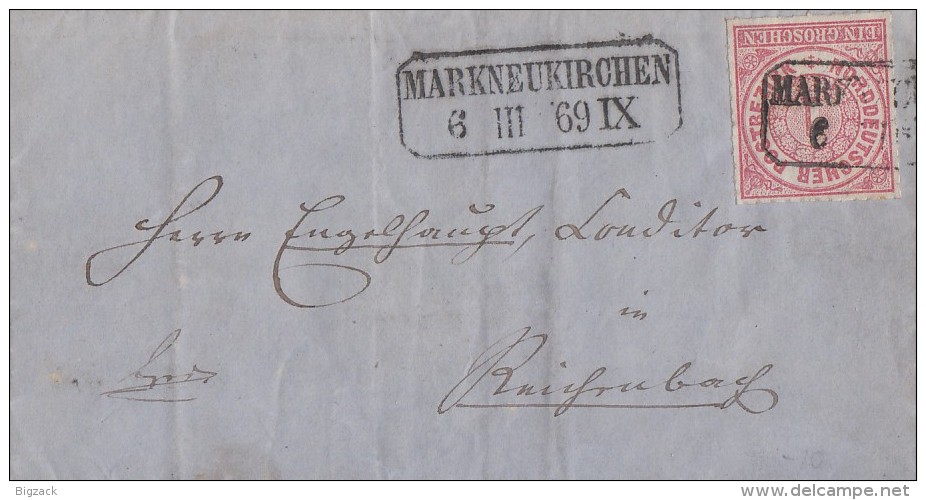 MARKNEUKIRCHEN
6 III 69 IX
EIN GROSCHEN
NORDDEUTSCHER POSTBEZIRK
MARK
6
Herrn Engelhaupt, Conditor
in
Reichenbach
Bigzack
www.delcampe.net